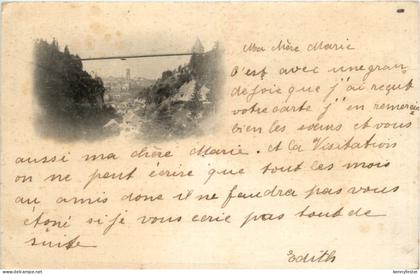 Ma chère Marie
C'est avec une gran
de joie que j'ai reçut
votre carte j'en remercie
bien les sœurs et vous
aussi ma chère Marie. et la Visitation
on ne peut écrire que tout les mois
au amis donc il ne faudra pas vous
étoné si je vous ecrie pas tout de
suite
Edith
bennyfoster